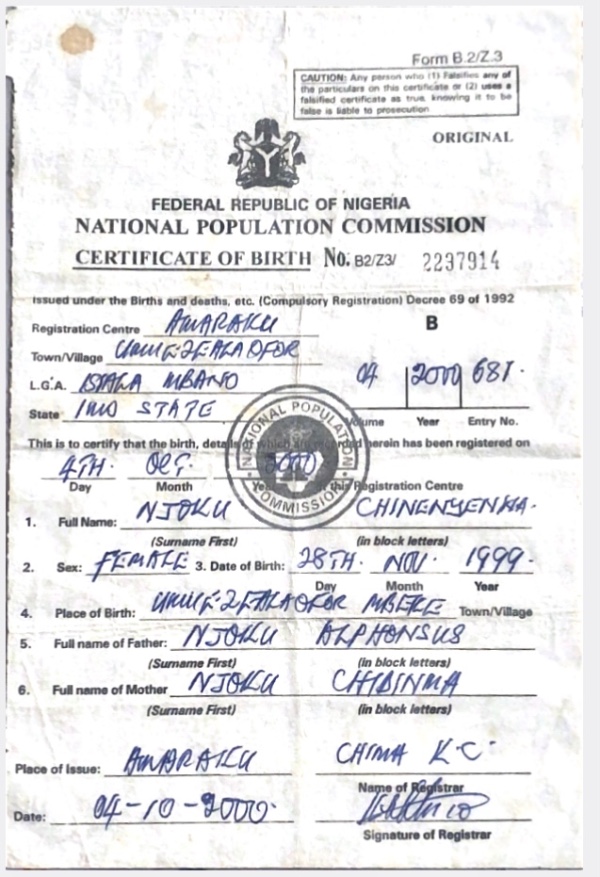 Form B.2/Z.3
CAUTION: Any person who (1) Falsifies any of
the particulars on this certificate or (2) uses a
falsified certificate as true, knowing it to be
false is liable to prosecution
ORIGINAL
FEDERAL REPUBLIC OF NIGERIA
NATIONAL POPULATION COMMISSION
CERTIFICATE OF BIRTH No. B2/Z3/ 2297914
Issued under the Births and deaths, etc. (Compulsory Registration) Decree 69 of 1992
Registration Centre AMARAKU
B
Town/Village UMUEZEALAOFOR
L.G.A. ISIALA MBANO 04 2000 681.
State IMO STATE
Volume Year Entry No.
NATIONAL POPULATION COMMISSION
This is to certify that the birth, details of which are recorded herein has been registered on
4TH. OCT. 2000
Day Month Year this Registration Centre
1. Full Name: NJOKU CHINENYENWA.
(Surname First) (in block letters)
2. Sex: FEMALE 3. Date of Birth: 28TH. NOV. 1999.
Day Month Year
4. Place of Birth: UMUEZEALAOFOR MBEKE Town/Village
5. Full name of Father: NJOKU ALPHONSUS
(Surname First) (in block letters)
6. Full name of Mother NJOKU CHIBINMA
(Surname First) (in block letters)
Place of Issue: AMARAKU CHIMA K.C.
Name of Registrar
Date: 04-10-2000.
Signature of Registrar